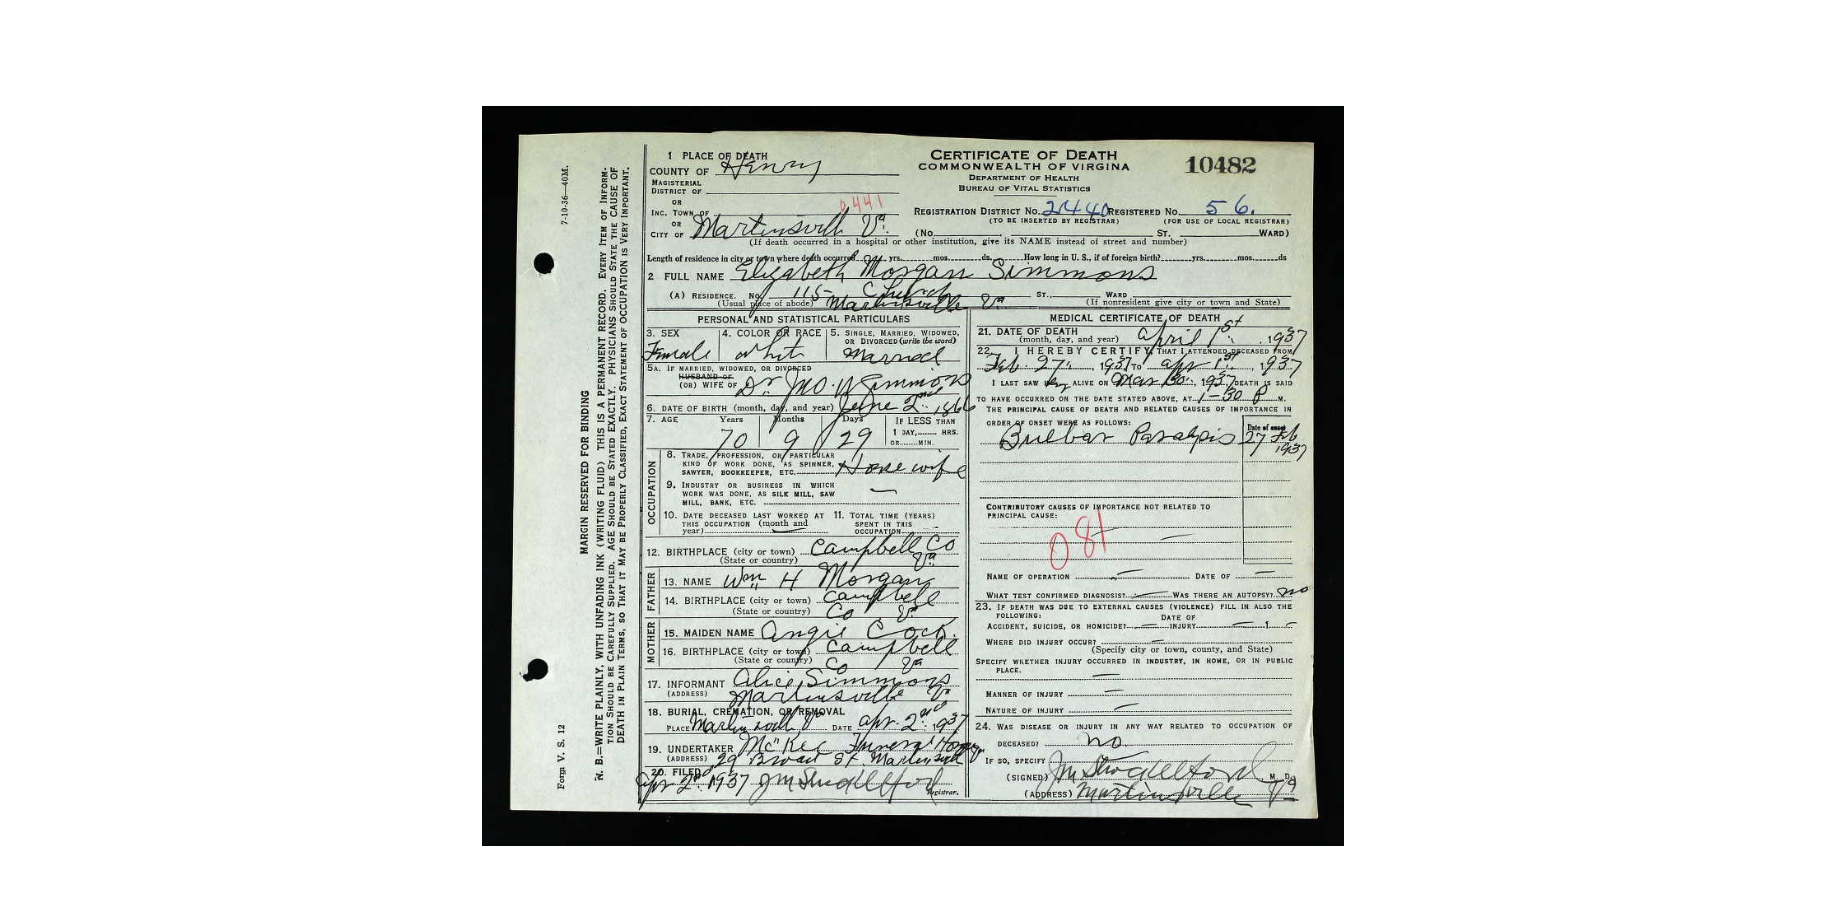 7-10-36—40M.
Form V. S. 12
MARGIN RESERVED FOR BINDING
N. B.—WRITE PLAINLY, WITH UNFADING INK (WRITING FLUID) THIS IS A PERMANENT RECORD. EVERY ITEM OF INFORM-
TION SHOULD BE CAREFULLY SUPPLIED. AGE SHOULD BE STATED EXACTLY. PHYSICIANS SHOULD STATE THE CAUSE OF
DEATH IN PLAIN TERMS, SO THAT IT MAY BE PROPERLY CLASSIFIED, EXACT STATEMENT OF OCCUPATION IS VERY IMPORTANT.
CERTIFICATE OF DEATH
COMMONWEALTH OF VIRGINIA
DEPARTMENT OF HEALTH
BUREAU OF VITAL STATISTICS
10482
1 PLACE OF DEATH
COUNTY OF Henry
MAGISTERIAL
DISTRICT OF
OR
INC. TOWN OF
0441
OR
CITY OF Martinsville Va.
REGISTRATION DISTRICT No. 2440 REGISTERED No. 56.
(TO BE INSERTED BY REGISTRAR) (FOR USE OF LOCAL REGISTRAR)
(No. ST. WARD)
(If death occurred in a hospital or other institution, give its NAME instead of street and number)
Length of residence in city or town where death occurred yrs. mos. ds. How long in U. S., if of foreign birth? yrs. mos. ds
2 FULL NAME Elizabeth Morgan Simmons
(A) RESIDENCE. No. 115 Church ST. WARD
(Usual place of abode) Martinsville Va (If nonresident give city or town and State)
PERSONAL AND STATISTICAL PARTICULARS
3. SEX Female
4. COLOR OR RACE White
5. SINGLE, MARRIED, WIDOWED,
OR DIVORCED (write the word)
Married
5A. IF MARRIED, WIDOWED, OR DIVORCED
HUSBAND OF
(OR) WIFE OF Dr. Jno. W Simmons
6. DATE OF BIRTH (month, day, and year) June 2nd 1866
7. AGE Years Months Days IF LESS THAN
1 DAY, HRS.
OR MIN.
70 9 29
OCCUPATION
8. TRADE, PROFESSION, OR PARTICULAR
KIND OF WORK DONE, AS SPINNER,
SAWYER, BOOKKEEPER, ETC. Housewife
9. INDUSTRY OR BUSINESS IN WHICH
WORK WAS DONE, AS SILK MILL, SAW
MILL, BANK, ETC. —
10. DATE DECEASED LAST WORKED AT
THIS OCCUPATION (month and
year) —
11. TOTAL TIME (YEARS)
SPENT IN THIS
OCCUPATION
12. BIRTHPLACE (city or town) Campbell Co
(State or country) Va
FATHER
13. NAME Wm H Morgan
14. BIRTHPLACE (city or town) Campbell
(State or country) Co Va
MOTHER
15. MAIDEN NAME Angie Cock.
16. BIRTHPLACE (city or town) Campbell
(State or country) Co Va
17. INFORMANT Alice Simmons
(ADDRESS) Martinsville Va
18. BURIAL, CREMATION, OR REMOVAL
PLACE Martinsville Va DATE Apr. 2nd 1937
19. UNDERTAKER McKee Funeral Home
(ADDRESS) 29 Broad St. Martinsville
20. FILED
Apr 2nd 1937 J M Shackelford
Registrar.
MEDICAL CERTIFICATE OF DEATH
21. DATE OF DEATH April 1st, 1937
(month, day, and year)
22. I HEREBY CERTIFY, THAT I ATTENDED DECEASED FROM
Feb 27, 1937 TO Apr 1st 1937
I LAST SAW her ALIVE ON Mar 30, 1937 DEATH IS SAID
TO HAVE OCCURRED ON THE DATE STATED ABOVE, AT 1-30 P M.
THE PRINCIPAL CAUSE OF DEATH AND RELATED CAUSES OF IMPORTANCE IN
ORDER OF ONSET WERE AS FOLLOWS:
Date of onset
Bulbar Paralysis 27 Feb
1937
CONTRIBUTORY CAUSES OF IMPORTANCE NOT RELATED TO
PRINCIPAL CAUSE:
081
NAME OF OPERATION — DATE OF —
WHAT TEST CONFIRMED DIAGNOSIS? — WAS THERE AN AUTOPSY? no
23. IF DEATH WAS DUE TO EXTERNAL CAUSES (VIOLENCE) FILL IN ALSO THE
FOLLOWING:
ACCIDENT, SUICIDE, OR HOMICIDE? — DATE OF INJURY — 1 —
WHERE DID INJURY OCCUR? —
(Specify city or town, county, and State)
SPECIFY WHETHER INJURY OCCURRED IN INDUSTRY, IN HOME, OR IN PUBLIC
PLACE. —
MANNER OF INJURY —
NATURE OF INJURY —
24. WAS DISEASE OR INJURY IN ANY WAY RELATED TO OCCUPATION OF
DECEASED? no.
IF SO, SPECIFY
(SIGNED) J M Shackelford M. D.
(ADDRESS) Martinsville Va